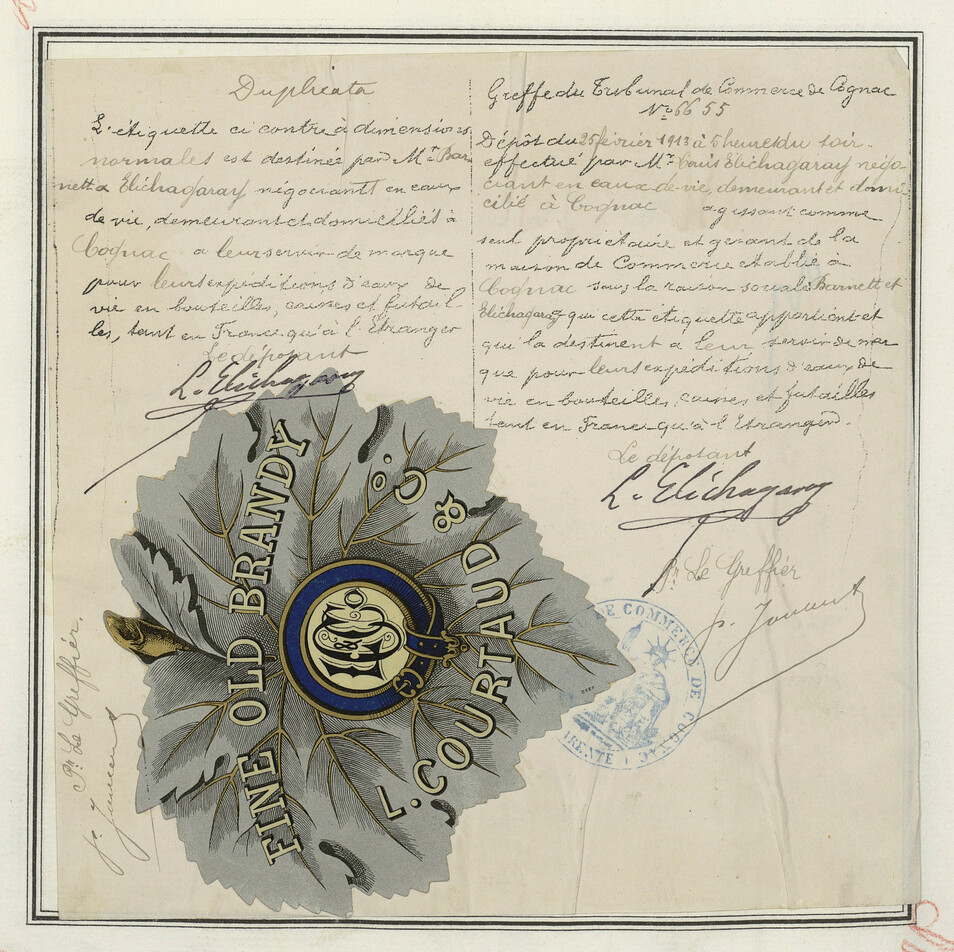 Duplicata
L'étiquette ci contre à dimensions
normales est destinée par Mr. Bar
nett & Elichagaray négociants en eaux
de vie, demeurant et domiciliés à
Cognac a leur servir de marque
pour leurs expéditions d'eaux de
vie en bouteilles, caisses et futail
les, tant en France qu'à l'Etranger
Le déposant
L. Elichagaray
Greffe du Tribunal de Commerce de Cognac
No 6655
Dépôt du 25 février 1913 à 5 heures du soir
effectué par Mr. Louis Elichagaray négo-
ciant en eaux-de-vie, demeurant et domi
cilié à Cognac agissant comme
seul propriétaire et gérant de la
maison de Commerce établie à
Cognac sous la raison sociale Barnett et
Elichagaray qui cette étiquette appartient et
qui la destinent a leur servir de mar
que pour leurs expéditions d'eaux de
vie en bouteilles, caisses et futailles
tant en France qu'à l'Etranger.
Le déposant
L. Elichagaray
Pr. Le Greffier
Pr. Le Greffier.
FINE OLD BRANDY
L. COURTAUD
& Co.
L.C & Co
DE COMMERCE DE COGNAC